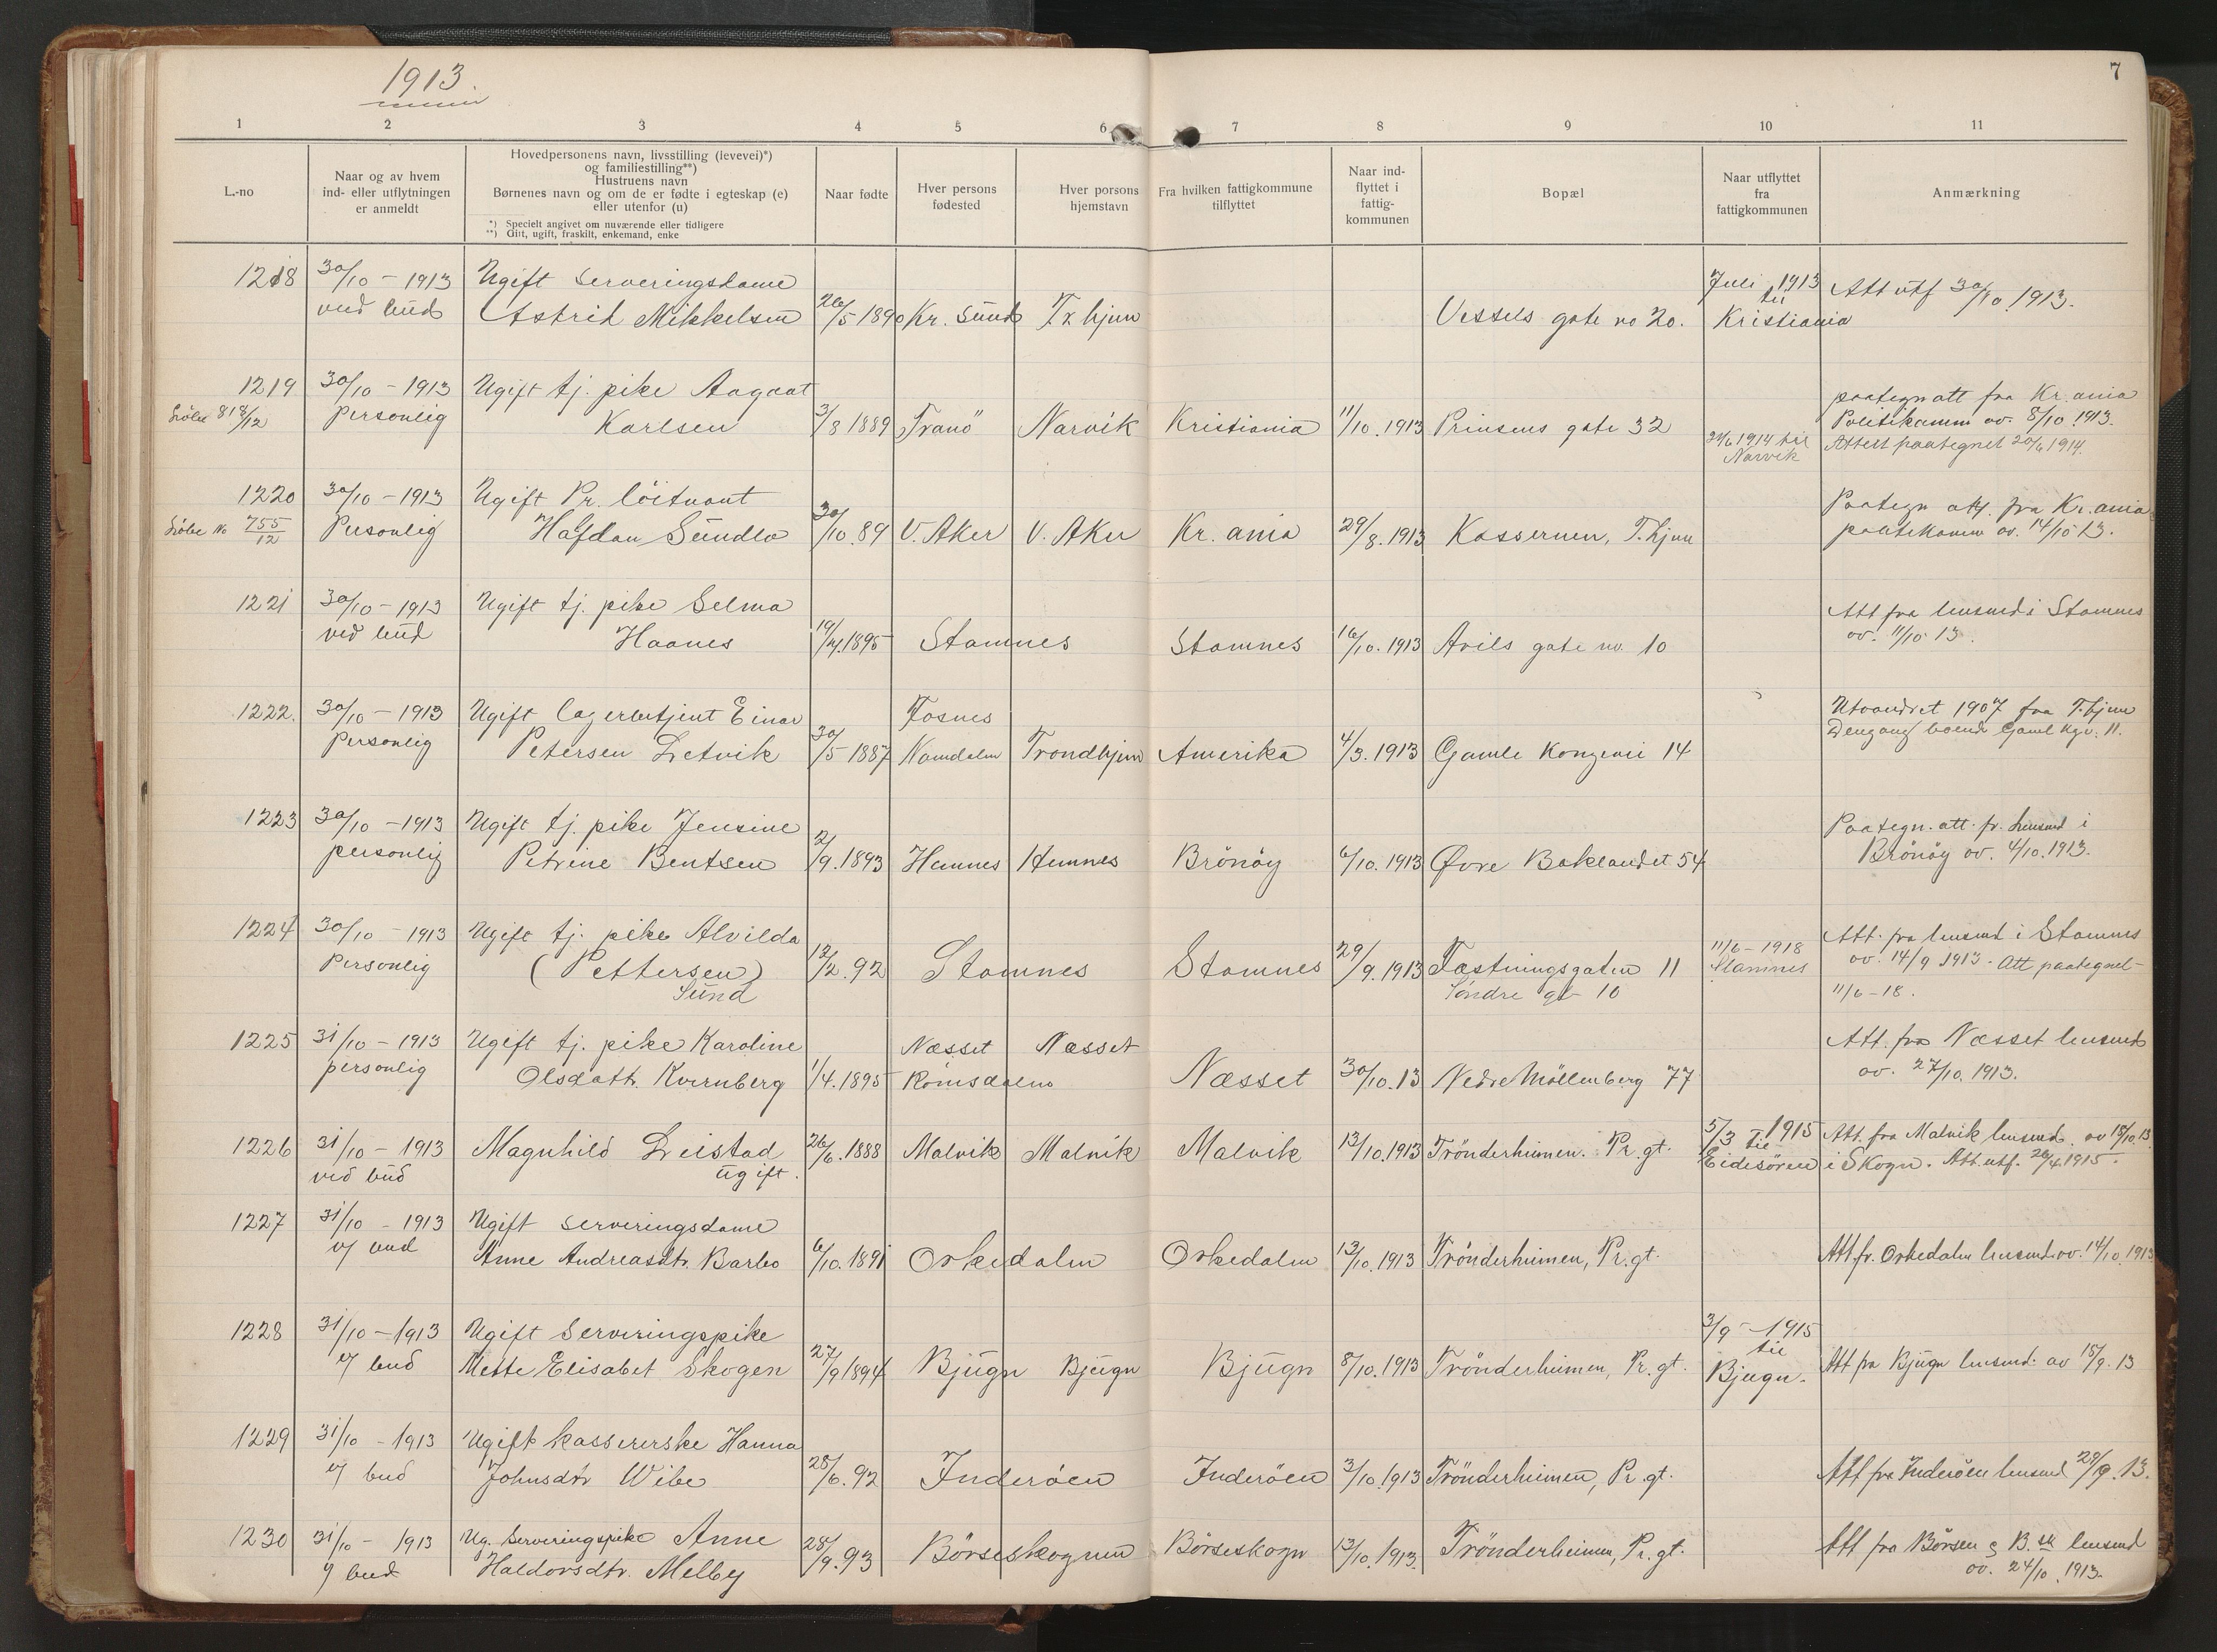 1913.
7
1 2 3 4 5 6 7 8 9 10 11
L.-no
Naar og av hvem
ind- eller utflytningen
er anmeldt
Hovedpersonens navn, livsstilling (levevei)*)
og familiestilling**)
Hustruens navn
Børnenes navn og om de er fødte i egteskap (e)
eller utenfor (u)
*) Specielt angivet om nuværende eller tidligere
**) Gift, ugift, fraskilt, enkemand, enke
Naar fødte
Hver persons
fødested
Hver persons
hjemstavn
Fra hvilken fattigkommune
tilflyttet
Naar ind-
flyttet i
fattig-
kommunen
Bopæl
Naar utflyttet
fra
fattigkommunen
Anmærkning
1218 30/10 - 1913 Ugift Serveringsdame Juli 1913 Att utf 30/10 1913.
ved bud Astrid Mikkelsen 26/5 1890 Kr. Sund Tr hjem Vessels gate no 20. til Kristiania
1219 30/10 - 1913 Ugift tj. pike Aagaat paategn att fra Kr. ania
818/12 Personlig Karlsen 3/8 1889 Tranö Narvik Kristiania 11/10. 1913 Prinsens gate 32 Politikamm av. 8/10 1913.
24/6 1914 til Narvik Attest paategnet 20/6 1914.
1220 30/10 - 1913 Ugift Pr. löitnant Paategn att. fra Kr. ania
No 755/12 Personlig Halfdan Sundlo 30/10. 89 V. Aker V. Aker Kr. ania 29/8. 1913 Kassernen, T.hjem av. 14/10 13.
1221 30/10 - 1913 Ugift tj. pike Selma Att fra lensmd i Stamnes
ved bud Haanes 19/4. 1895 Stamnes Stamnes 16/10. 1913 Arils gate no. 10 av. 11/10 13.
1222. 30/10 - 1913 Ugift lagerbetjent Einar Fosnes Utvandret 1907 fra T.hjem
Personlig Petersen Letvik 30/5 1887 Namdalen Trondhjem Amerika 4/3. 1913 Gamle Kongevei 14 Dengang boend Gaml Kgv. 11.
1223 30/10 - 1913 Ugift tj. pike Jensine Paategn. att. fr. lensmd i
personlig Petrine Bentsen 2/9. 1893 Hemnes Hemnes Brönöy 6/10. 1913 Øvre Baklandet 54 Brönöy av. 4/10. 1913.
1224 30/10 - 1913 Ugift tj. pike Alvilda 11/6 - 1918 Att. fra lensmd i Stamnes
Personlig (Pettersen) 12/2. 92 Stamnes Stamnes 29/9. 1913 Fæstningsgaten 11 Stamnes av. 14/9 1913. Att paategnet
Sund Söndre gt 10 11/6 - 18.
1225 31/10 - 1913 Ugift tj. pike Karoline Næsset Næsset Att. fra Næsset lensmd
personlig Olsdatr. Kvernberg 1/4. 1895 Romsdalen Næsset 30/10. 13 Nedre Möllenberg 77 av. 27/10. 1913.
1226 31/10 - 1913 Magnhild Leistad 26/6. 1888 Malvik Malvik Malvik 13/10. 1913 Trönderheimen. Pr. gt. 5/3 1915 til Att. fra Malvik lensmd. av 15/10. 13
ved bud ugift. Eidesören i Skogn. Att. utf. 26/4 1915.
1227 31/10 - 1913 Ugift Serveringsdame
v/ bud Anne Andreasdtr. Barbo 6/10. 1891 Orkedalen Orkedalen 13/10. 1913 Trönderheimen, Pr. gt. Att. fr. Orkedalen lensmd. av. 14/10. 1913
1228 31/10 - 1913 Ugift Serveringspike 3/9 - 1915
v/ bud Mette Elisabet Skogen 27/9 1894 Bjugn Bjugn Bjugn 8/10. 1913 Trönderheimen, Pr. gt. til Bjugn. Att fra Bjugn lensmd. av 15/9. 13
1229 31/10 - 1913 Ugift kassererske Hanna
v/ bud Johnsdtr Wibe 28/6. 92 Inderöen Inderöen 3/10. 1913 Trönderheimen, Pr. gt. Att fra Inderöen lensmd 29/9. 13.
1230 31/10 - 1913 Ug. Serveringspike Anne Att fra Börsen o B. sk lensmd
v/ bud Haldorsdtr. Melby 28/9. 93 Börseskognen Börseskogn 13/10. 1913. Trönderheimen, Pr. gt. av. 24/10. 1913.